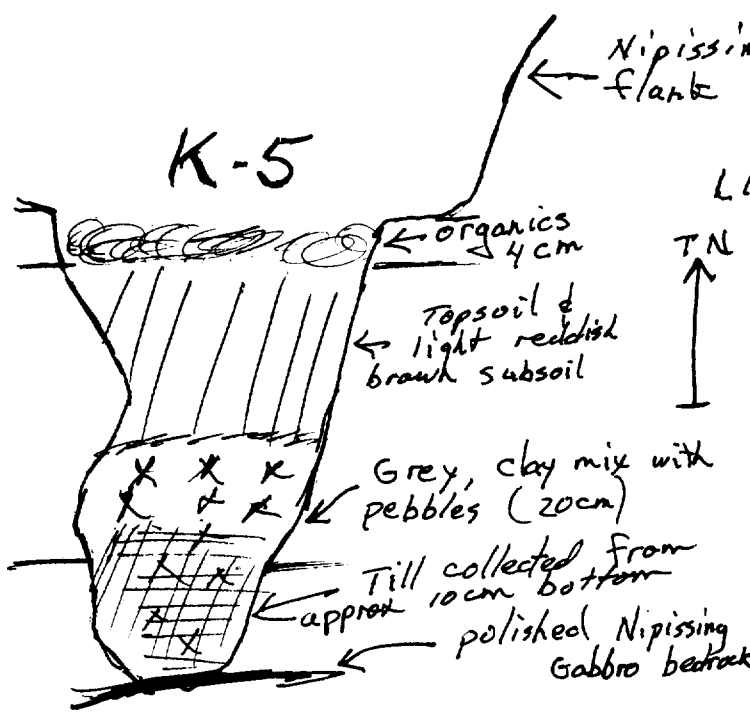 Nipissin
flank
K-5
LL
TN
organics
4 cm
Topsoil &
light reddish
brown subsoil
Grey, clay mix with
pebbles (20cm)
Till collected from
approx 10cm bottom
polished Nipissing
Gabbro bedrock